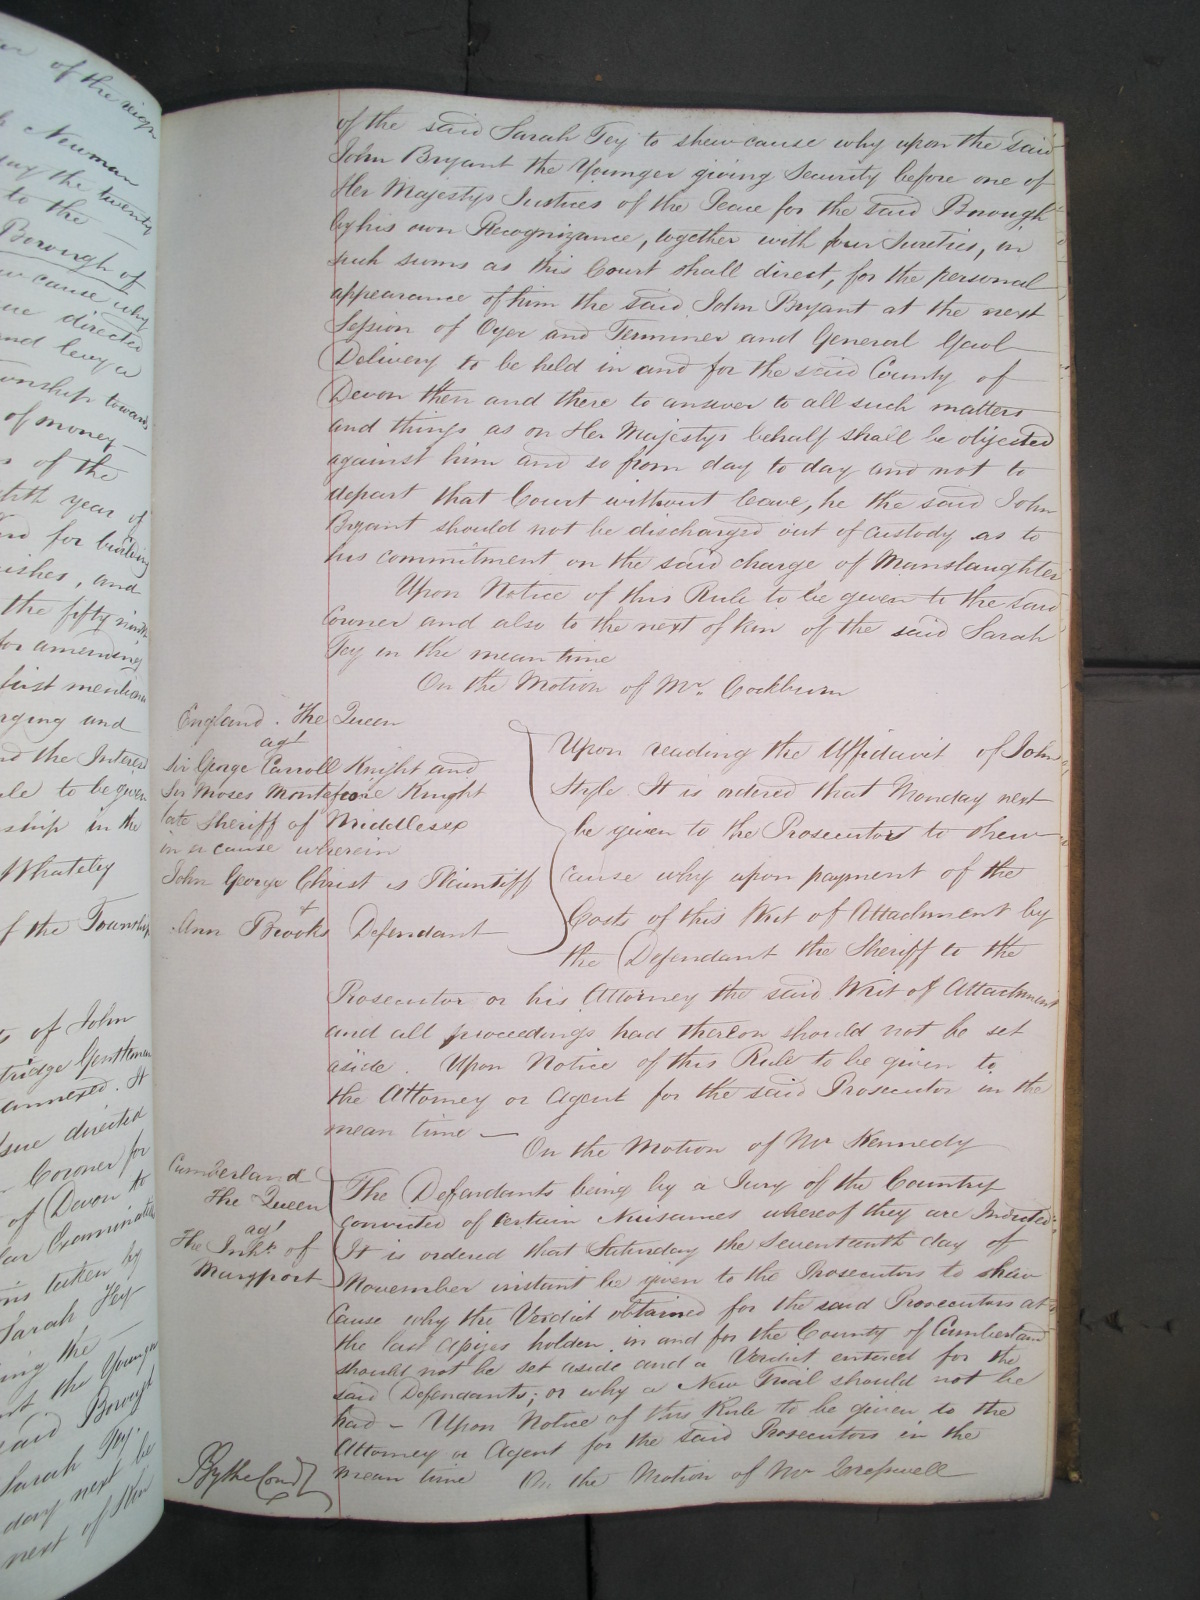 of the said Sarah Fey to shew cause why upon the said
John Bryant the Younger giving Security before one of
Her Majestys Justices of the Peace for the said Borough
by his own Recognizance, together with four Sureties, in
such sums as this Court shall direct, for the personal
appearance of him the said John Bryant at the next
Session of Oyer and Terminer and General Gaol
Delivery to be held in and for the said County of
Devon then and there to answer to all such matters
and things as on Her Majestys behalf shall be objected
against him and so from day to day and not to
depart that Court without leave, he the said John
Bryant should not be discharged out of custody as to
his commitment on the said charge of Manslaughter
Upon Notice of this Rule to be given to the said
Coroner and also to the next of kin of the said Sarah
Fey in the mean time
On the Motion of Mr. Cockburn
England. The Queen
agt
Sir George Carroll Knight and
Sir Moses Montefiore Knight
late Sheriff of Middlesex
in a cause wherein
John George Christ is Plaintiff
+
Ann Brooks Defendant
Upon reading the Affidavit of John
Style It is ordered that Monday next
be given to the Prosecutor to shew
cause why upon payment of the
Costs of this Writ of Attachment by
the Defendant the Sheriff to the
Prosecutor or his Attorney the said Writ of Attachment
and all proceedings had thereon should not be set
aside. Upon Notice of this Rule to be given to
the Attorney or Agent for the said Prosecutor in the
mean time —
On the Motion of Mr Kennedy
Cumberland
The Queen
agt
The Inhts. of
Maryport
The Defendants being by a Jury of the Country
convicted of certain Nuisances whereof they are Indicted
It is ordered that Saturday the seventeenth day of
November instant be given to the Prosecutors to shew
Cause why the Verdict obtained for the said Prosecutors at
the last Assizes holden in and for the County of Cumberland
should not be set aside and a Verdict entered for the
said Defendants; or why a New Trial should not be
had – Upon Notice of this Rule to be given to the
Attorney or Agent for the said Prosecutors in the
mean time On the Motion of Mr Cresswell
By the Court
of the reign
Newman
say the twenty
to the
Borough of
cause why
directed
and levy a
township towards
of money
of the
year of
for building
parishes, and
the fifty ninth
for amending
first mentioned
and
the Interest
to be given
in the
Whateley
of the Township
of John
Gentleman
annexed. It
directed
Coroner for
of Devon to
Examination
taken by
Sarah Fey
the
the Younger
said Borough
Sarah Fey.
day next be
next of Kin